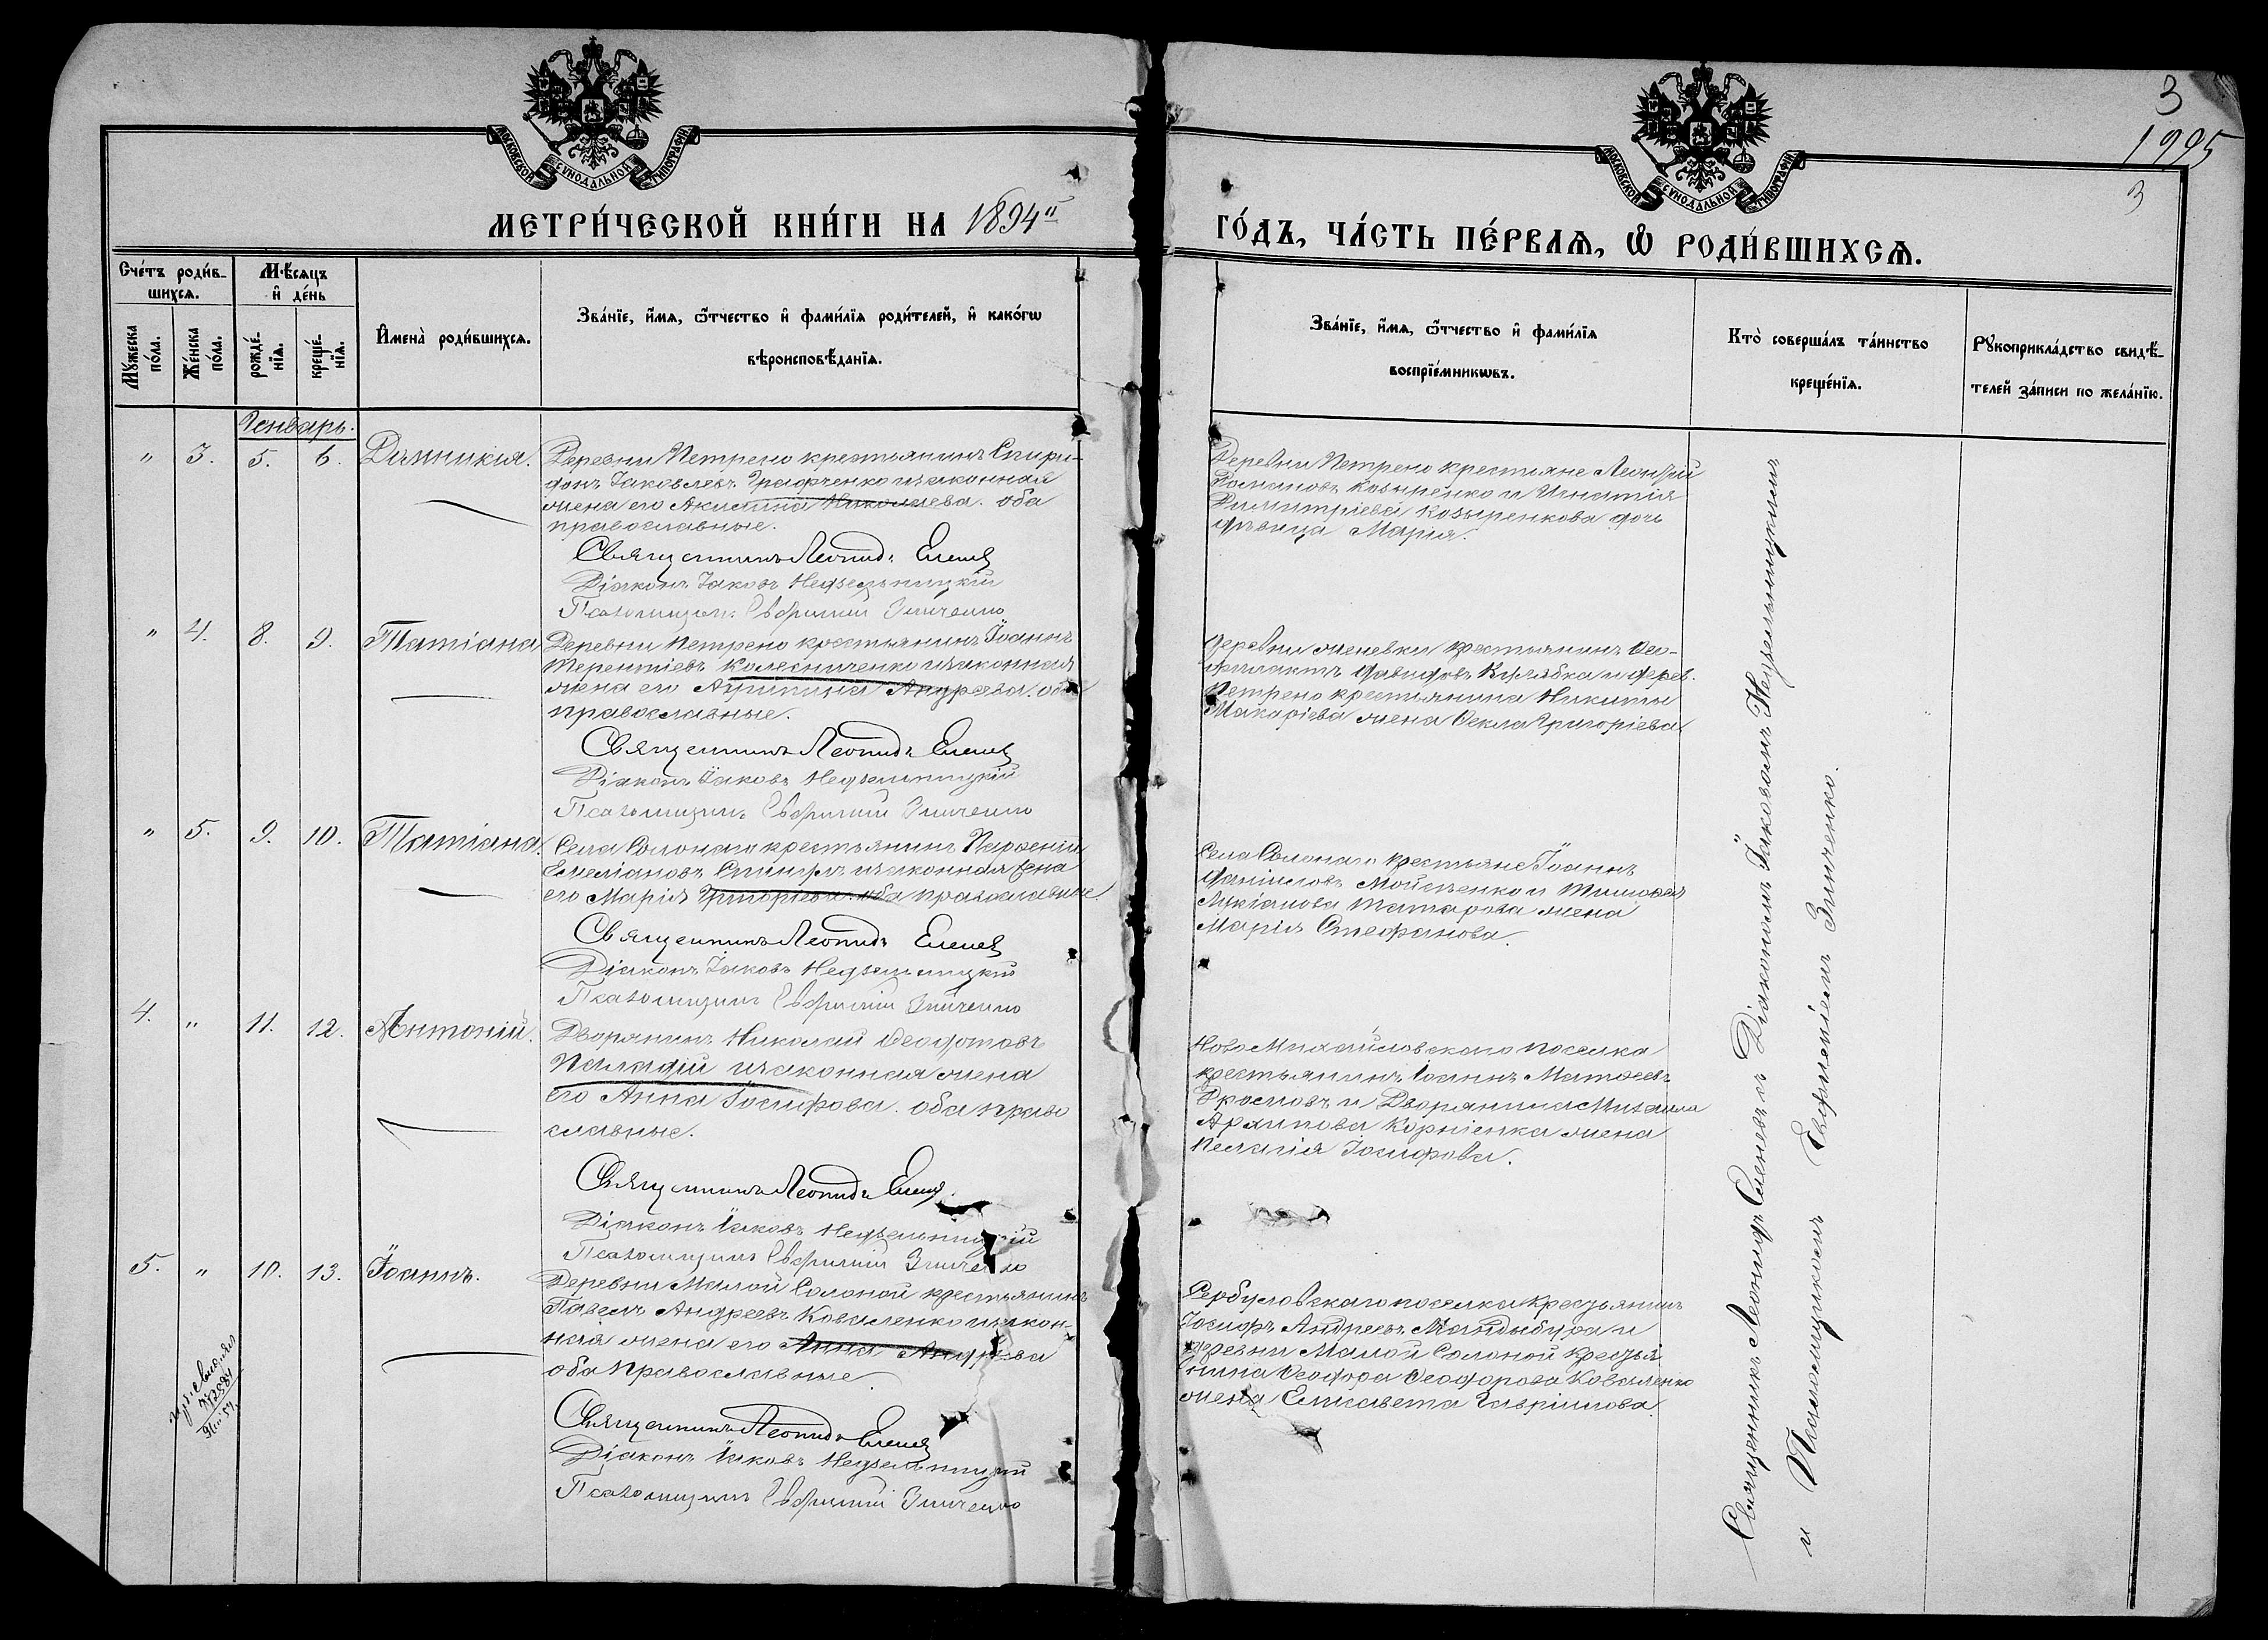 3
1995
3
МОСКОВСКОЙ СѴНОДАЛЬНОЙ ТИПОГРАФІИ
МОСКОВСКОЙ СѴНОДАЛЬНОЙ ТИПОГРАФІИ
МЕТРИ́ЧЕСКОЙ КНИ́ГИ НА 1894й
ГО́ДЪ, ЧА́СТЬ ПЕ́РВАѦ, Ѡ РОДИ́ВШИХСѦ.
Сче́тъ роди́в-
шихсѧ.
Мꙋжеска по́ла.
Же́нска по́ла.
Мѣ́сѧцъ
и҆ де́нь
рожде́-
нїѧ.
креще́-
нїѧ.
И҆мена̀ роди́вшихсѧ.
Зва́нїе, и҆́мѧ, ѻ҆́тчество и҆ фами́лїѧ роди́телей, и҆ како́гѡ
вѣроисповѣ́данїѧ.
Зва́нїе, и҆́мѧ, ѻ҆́тчество и҆ фами́лїѧ
воспрїе́мникѡвъ.
Кто̀ соверша́лъ та́инство
креще́нїѧ.
Рꙋкоприкла́дство свидѣ́-
телей за́писи по жела́нїю.
Генварь.
" 3. 5. 6. Домникія.
Деревни Петрено крестьянинъ Спири-
донъ Іаковлевъ Графченко и законная
жена его Акилина Николаева. оба
православные.
Священникъ Леонидъ Еленевъ
Діаконъ Іаковъ Недзельницкій
Псаломщикъ Евфимій Зинченко
Деревни Петрено крестьяне Леонтій
Романовъ Козыренко и Игнатія
Димитріева Козыренкова дочь
дѣвица Марія.
" 4. 8. 9. Татіана
Деревни Петрено крестьянинъ Іоаннъ
Терентіевъ Колесниченко и законная
жена его Агрипина Андреева. оба
православные.
Священникъ Леонидъ Еленевъ
Діаконъ Іаковъ Недзельницкій
Псаломщикъ Евфимій Зинченко
Деревни крестьянинъ Ѳео-
филактъ Давидовъ Кулябка и дерев.
Петрено крестьянина Никиты
Макаріева жена Ѳекла Григоріева
" 5. 9. 10. Татіана.
Села Солонаго крестьянинъ Парѳеній
Емеліановъ и законная жена
его Марія Григорьева. оба православные.
Священникъ Леонидъ Еленевъ
Діаконъ Іаковъ Недзельницкій
Псаломщикъ Евфимій Зинченко
Села Солонаго крестьяне Іоаннъ
Даніиловъ Мойсѣенко и Тимоѳея
Лукіанова Татарова жена
Марія Стефанова.
4. " 11. 12. Антоній.
Дворянинъ Николай Ѳеодотовъ
Паладій и законная жена
его Анна Іосифова. оба право
славные.
Священникъ Леонидъ Еленевъ
Діаконъ Іаковъ Недзельницкій
Псаломщикъ Евфимій Зинченко
Ново Михайловскаго поселка
крестьянинъ Іоаннъ Матѳеевъ
и Дворянина Михаила
Архипова Корніенка жена
Пелагія Іосифова.
5. " 10. 13. Іоаннъ.
Деревни Малой Солоной крестьянинъ
Павелъ Андреевъ Коваленко и закон-
ная жена его Анна Андреева
оба православные.
Священникъ Леонидъ Еленевъ
Діаконъ Іаковъ Недзельницкій
Псаломщикъ Евфимій Зинченко
Сербуловскаго поселка крестьянинъ
Іосифъ Андреевъ Мандыбура и
деревни Малой Солоной крестья
нина Ѳеодора Ѳеодорова Коваленко
жена Елисавета Гавріилова.
Священникъ Леонидъ Еленевъ съ Діакономъ Іаковомъ Недзельницкимъ
и Псаломщикомъ Евфиміемъ Зинченко.